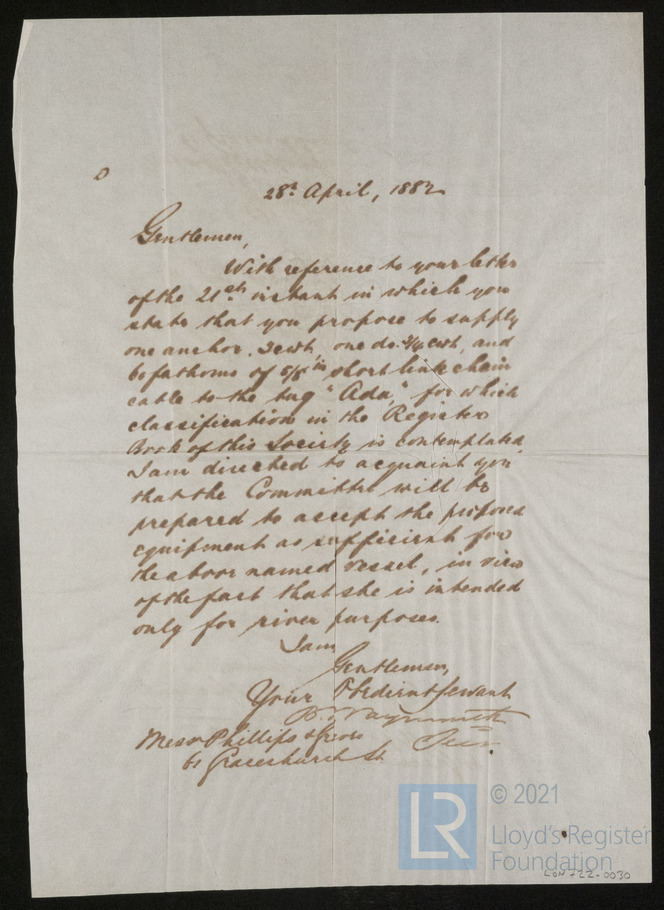 28th April, 1882
Gentlemen,
With reference to your letter
of the 21st instant in which you
state that you propose to supply
one anchor, 3cwt, one do. 3/4 cwt, and
60 fathoms of 5/8 in short link chain
cable to the tug "Ada," for which
classification in the Register
Book of this Society is contemplated,
I am directed to acquaint you
that the Committee will be
prepared to accept the proposed
equipment as sufficient for
the above named vessel, in view
of the fact that she is intended
only for river purposes.
I am
Gentlemen,
Your Obedient Servant
B. Waymouth
Secy
Messrs Phillips &
Gracechurch St
© 2021
LR
Lloyd's Register
Foundation
LON-22-0030